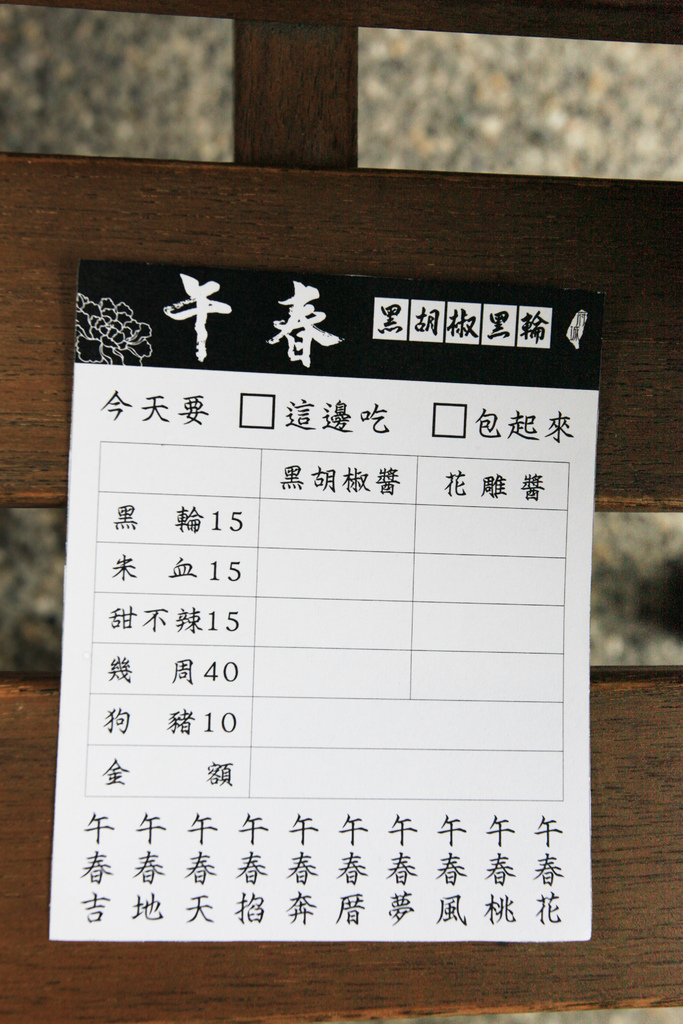 午春 黑胡椒黑輪 府城
今天要 □這邊吃 □包起來
黑胡椒醬 花雕醬
黑輪15
朱血15
甜不辣15
幾周40
狗豬10
金額
午春吉 午春地 午春天 午春掐 午春奔 午春厝 午春夢 午春風 午春桃 午春花